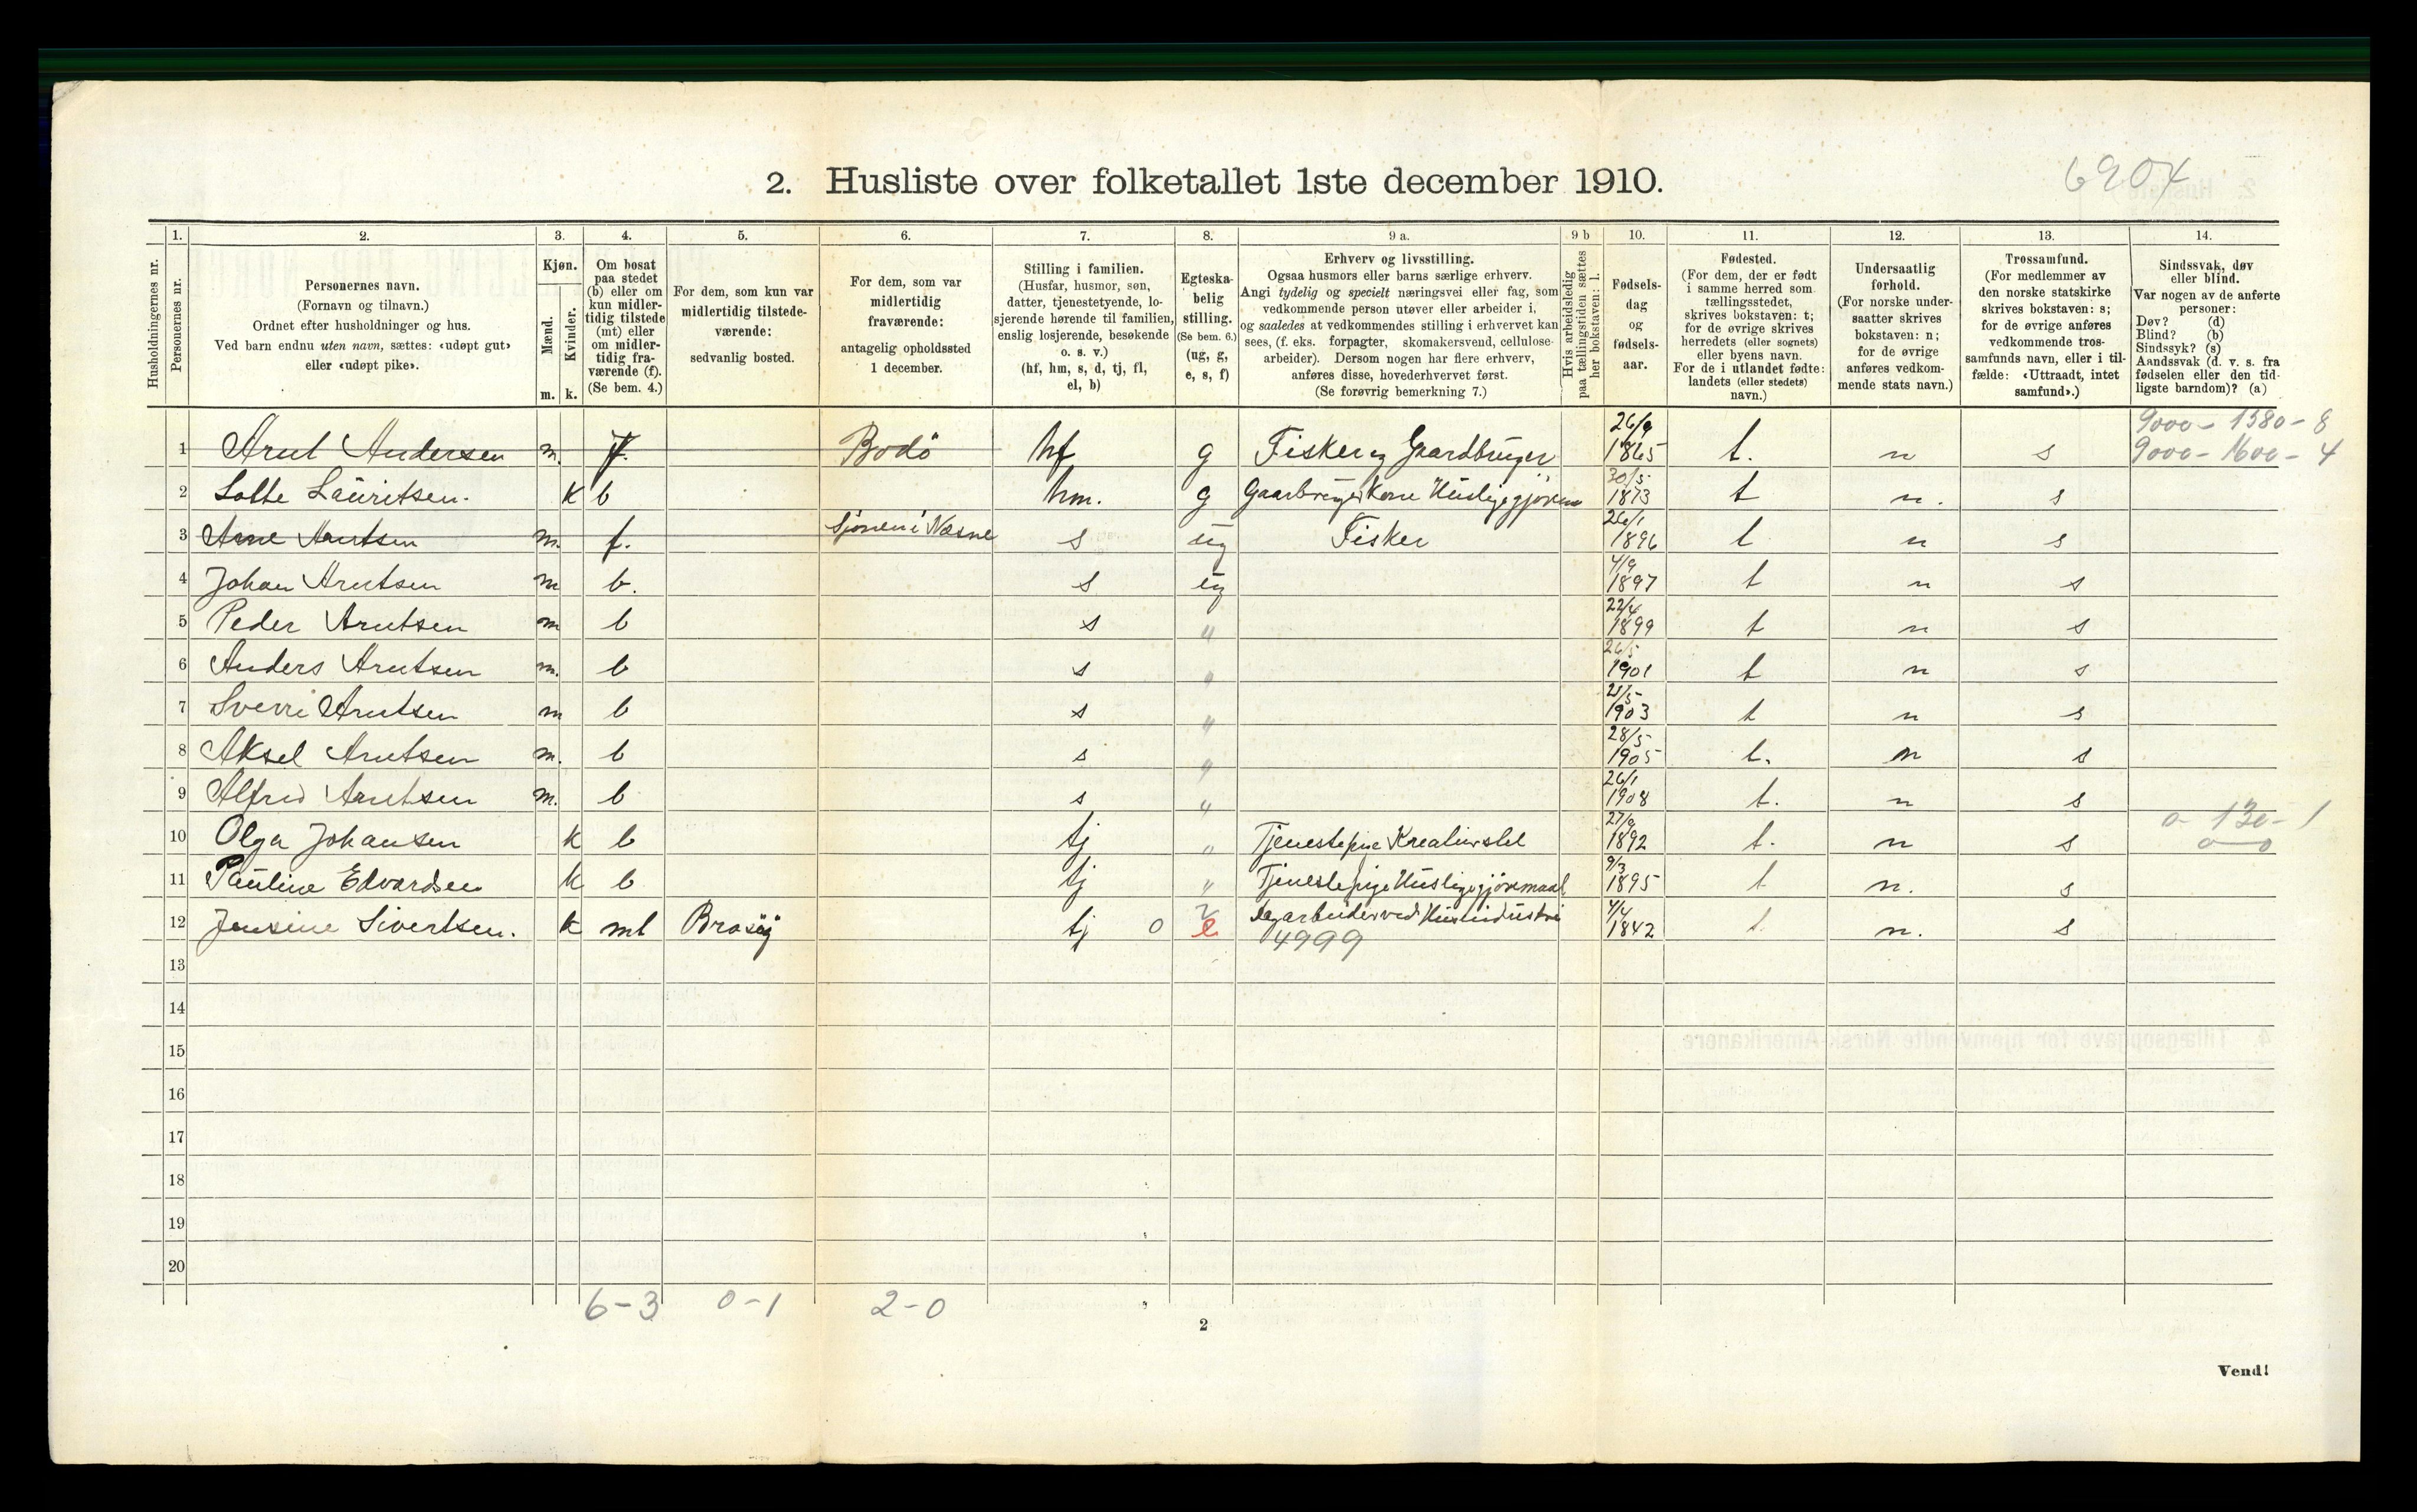 2. Husliste over folketallet 1ste december 1910.
6904
1. 2. 3. 4. 5. 6. 7. 8. 9 a. 9 b 10. 11. 12. 13. 14.
Husholdningernes nr.
Personernes nr.
Personernes navn.
(Fornavn og tilnavn.)
Ordnet efter husholdninger og hus.
Ved barn endnu uten navn, sættes: «udøpt gut»
eller «udøpt pike».
Kjøn.
Mænd.
Kvinder.
m. k.
Om bosat
paa stedet
(b) eller om
kun midler-
tidig tilstede
(mt) eller
om midler-
tidig fra-
værende (f).
(Se bem. 4.)
For dem, som kun var
midlertidig tilstede-
værende:
sedvanlig bosted.
For dem, som var
midlertidig
fraværende:
antagelig opholdssted
1 december.
Stilling i familien.
(Husfar, husmor, søn,
datter, tjenestetyende, lo-
sjerende hørende til familien,
enslig losjerende, besøkende
o. s. v.)
(hf, hm, s, d, tj, fl,
el, b)
Egteska-
belig
stilling.
(Se bem. 6.)
(ug, g,
e, s, f)
Erhverv og livsstilling.
Ogsaa husmors eller barns særlige erhverv.
Angi tydelig og specielt næringsvei eller fag, som
vedkommende person utøver eller arbeider i,
og saaledes at vedkommendes stilling i erhvervet kan
sees, (f. eks. forpagter, skomakersvend, cellulose-
arbeider). Dersom nogen har flere erhverv,
anføres disse, hovederhvervet først.
(Se forøvrig bemerkning 7.)
Hvis arbeidsledig
paa tællingstiden sættes
her bokstaven: l.
Fødsels-
dag
og
fødsels-
aar.
Fødested.
(For dem, der er født
i samme herred som
tællingsstedet,
skrives bokstaven: t;
for de øvrige skrives
herredets (eller sognets)
eller byens navn.
For de i utlandet fødte:
landets (eller stedets)
navn.)
Undersaatlig
forhold.
(For norske under-
saatter skrives
bokstaven: n;
for de øvrige
anføres vedkom-
mende stats navn.)
Trossamfund.
(For medlemmer av
den norske statskirke
skrives bokstaven: s;
for de øvrige anføres
vedkommende tros-
samfunds navn, eller i til-
fælde: «Uttraadt, intet
samfund».)
Sindssvak, døv
eller blind.
Var nogen av de anførte
personer:
Døv? (d)
Blind? (b)
Sindssyk? (s)
Aandssvak (d. v. s. fra
fødselen eller den tid-
ligste barndom)? (a)
9000 - 1380 - 8
9000 - 1600 - 4
1 Arnt Andersen m. f. Bodö hf g Fisker og Gaardbruger 26/9 1865 t. n s
2 Lotte Lauritsen. k b hm. g 30/5 1873 t n. s
3 Arne Arntsen m. f. Sjonen i Næsne s ug Fisker 26/1 1896 t n s
4 Johan Arntsen m b. s ug 4/9 1897 t n s
5 Peder Arntsen m b s " 22/4 1899 t n s
6 Anders Arntsen m. b s " 26/5 1901 t n s
7 Sverri Arntsen m b s " 21/5 1903 t n s
8 Aksel Arntsen m. b s " 28/5 1905 t. n s
9 Alfred Arntsen m. b s " 26/1 1908 t. n s
10 Olga Johansen k b tj " Tjenestepige Kreaturstel 27/9 1892 t. n s 0 - 130 - 1
0 - 0
11 Pauline Edvardsen k b tj " Tjenestepige Husligegjöremaal 9/3 1895 t n. s
12 Jensine Sivertsen. k mt Brasöy tj 0 e Dagarbeider ved Husindustri 4/4 1842 t. n. s
4999
13
14
15
16
17
18
19
20
6 - 3 0 - 1 2 - 0
2
Vend!